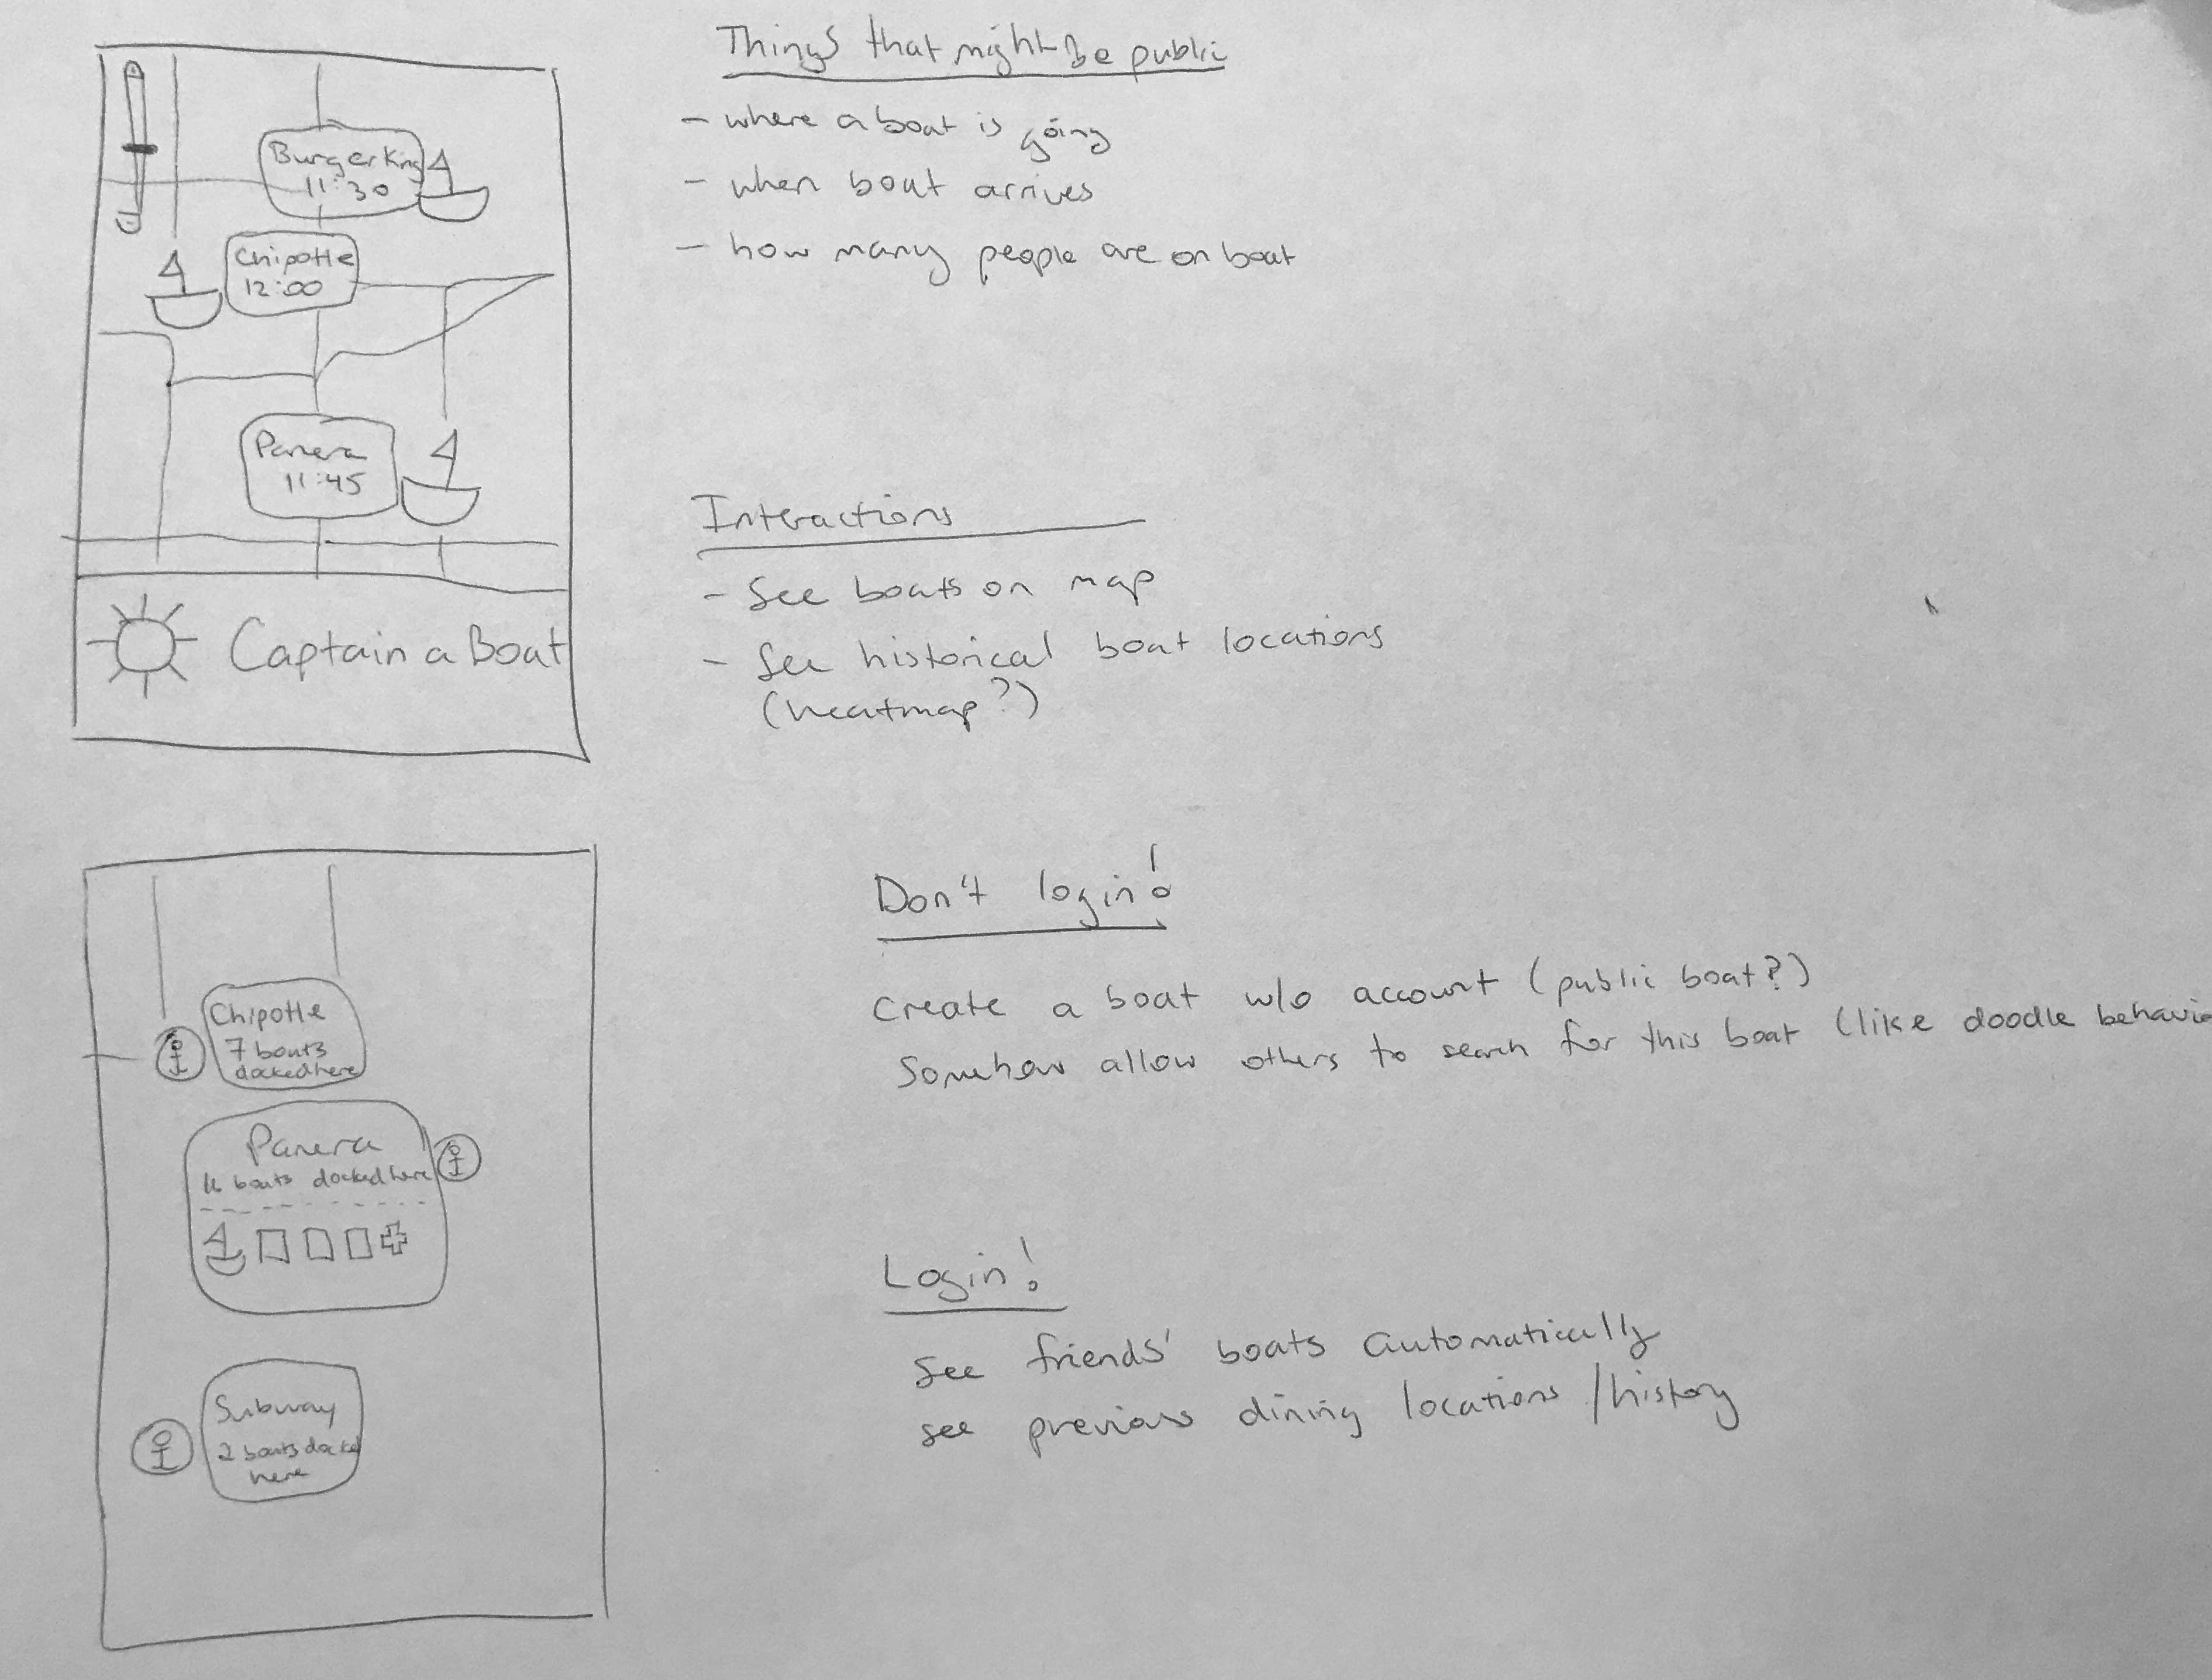 Burger King
11:30
Chipotle
12:00
Panera
11:45
Captain a Boat
Things that might be public
- where a boat is going
- when boat arrives
- how many people are on boat
Interactions
- See boats on map
- See historical boat locations
(heatmap?)
Chipotle
7 boats
docked here
Panera
boats docked here
Subway
2 boats docked
here
Don't login!
Create a boat w/o account (public boat?)
Somehow allow others to search for this boat (like doodle behavio
Login!
See friends' boats automatically
see previous dining locations/history